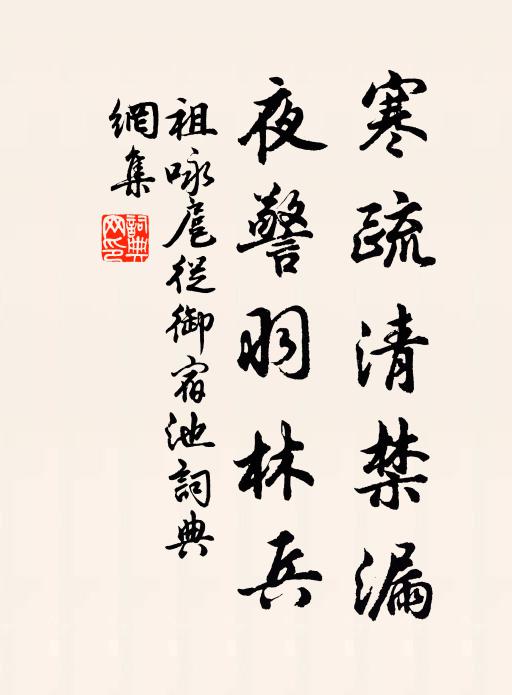 寒疏清禁漏
夜警羽林兵
祖咏扈從御宿池詞典
網集
詞典
网印